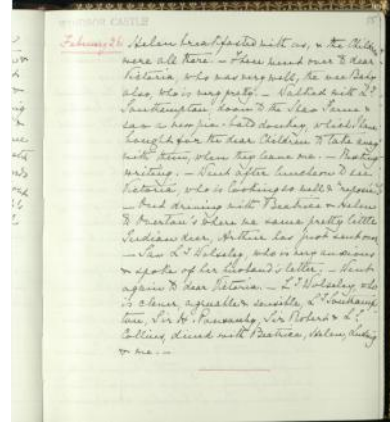 WINDSOR CASTLE
February 26. Helen breakfasted with us, & the Children
were all there. — Then went over to dear
Victoria, who was very well, the wee Baby
also, who is very pretty. — Walked with Ly
Southampton, down to the Shaw Farm &
saw a new pie-bald donkey, which I have
bought for the dear Children to take away
with them, when they leave me. — Resting
writing. — Went after luncheon to see
Victoria, who is looking so well & "reposée"
— Out driving with Beatrice & Helen
to Overton's where we saw a pretty little
Indian deer, Arthur has just sent over
— Saw Ly Wolseley, who is very anxious
& spoke of her husband's letter. — Went
again to dear Victoria. — Ly Wolseley who
is clever, agreeable & sensible, Ly Southamp
ton, Sir H. Ponsonby, Sir Robert & Ly
Collins, dined with Beatrice, Helen, Ludwig
& me. —